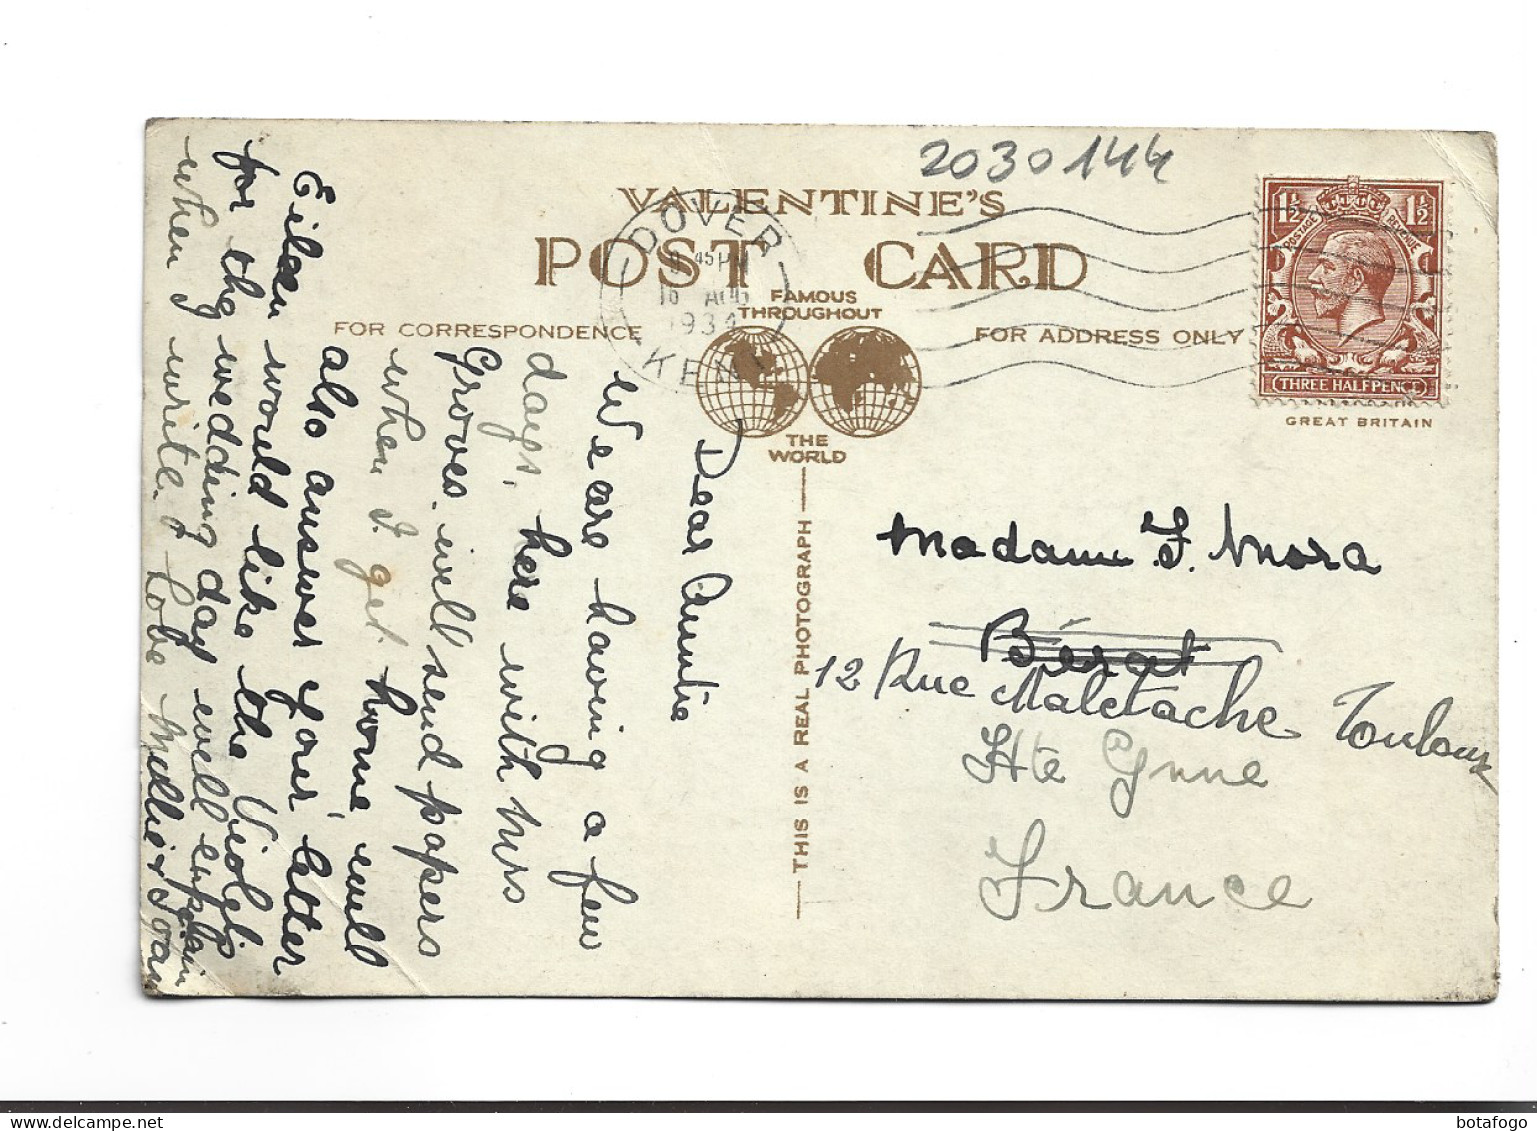 2030144
VALENTINE'S
POST CARD
FAMOUS
THROUGHOUT
THE
WORLD
FOR CORRESPONDENCE
FOR ADDRESS ONLY
THIS IS A REAL PHOTOGRAPH
DOVER
45 PM
16 AUG
1934
KENT
1½ 1½
POSTAGE REVENUE
THREE HALFPENCE
GREAT BRITAIN
Dear Auntie
We are having a few
days, here with Mrs
Groves. will send papers
when I get home, will
also answer your, letter
Eileen would like the Violets
for the wedding day will explain
when I write. Nellie & Joan
Madame F. Mora
Bérat
12 Rue Maletache Toulouse
Hte Gnne
France
botafogo